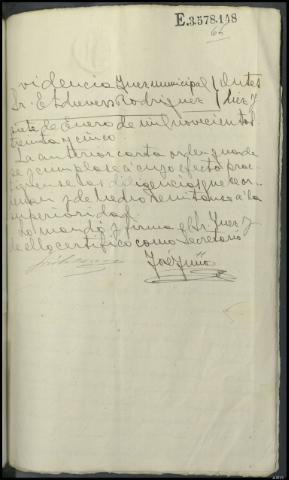 E.3.578.148
videncia Juez municipal
Sr. Rodriguez
siete de Enero de mil novecientos
treinta y cinco.
La anterior carta orden guarde
se y cumplase a cuyo efecto prac
tiquense las diligencias que se or
man y de hecho remitanse a la
superioridad.
Lo mandó y firma el Sr. Juez y
de ello certifico como Secretario
José